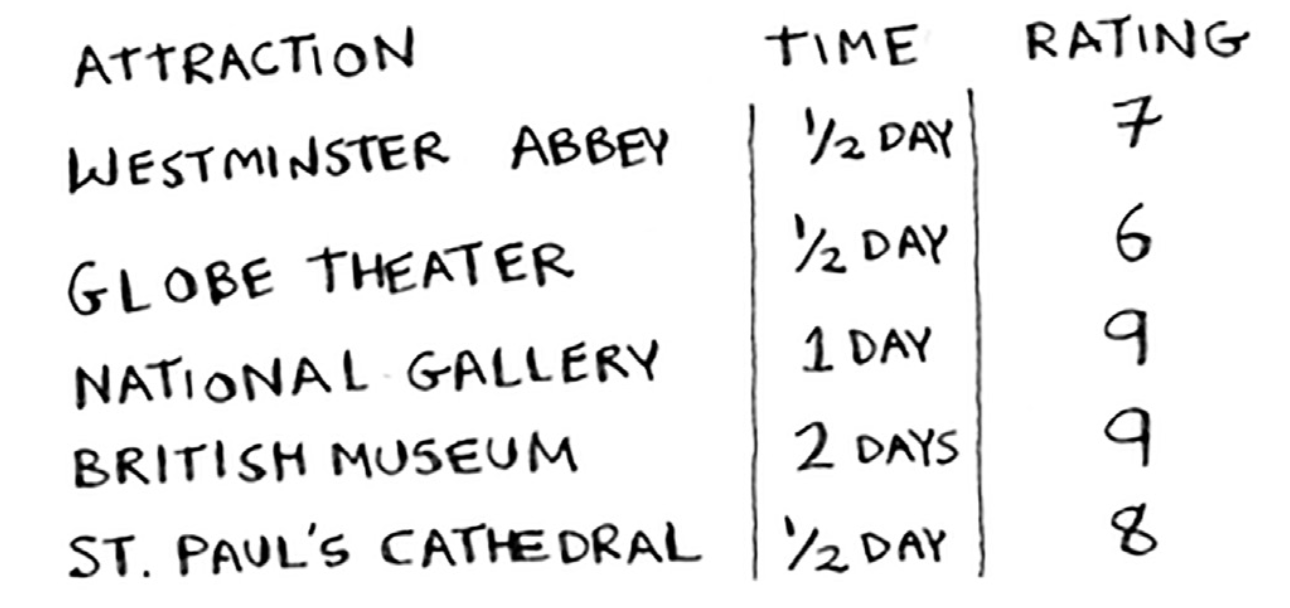 ATTRACTION TIME RATING
WESTMINSTER ABBEY 1/2 DAY 7
GLOBE THEATER 1/2 DAY 6
NATIONAL GALLERY 1 DAY 9
BRITISH MUSEUM 2 DAYS 9
ST. PAUL'S CATHEDRAL 1/2 DAY 8